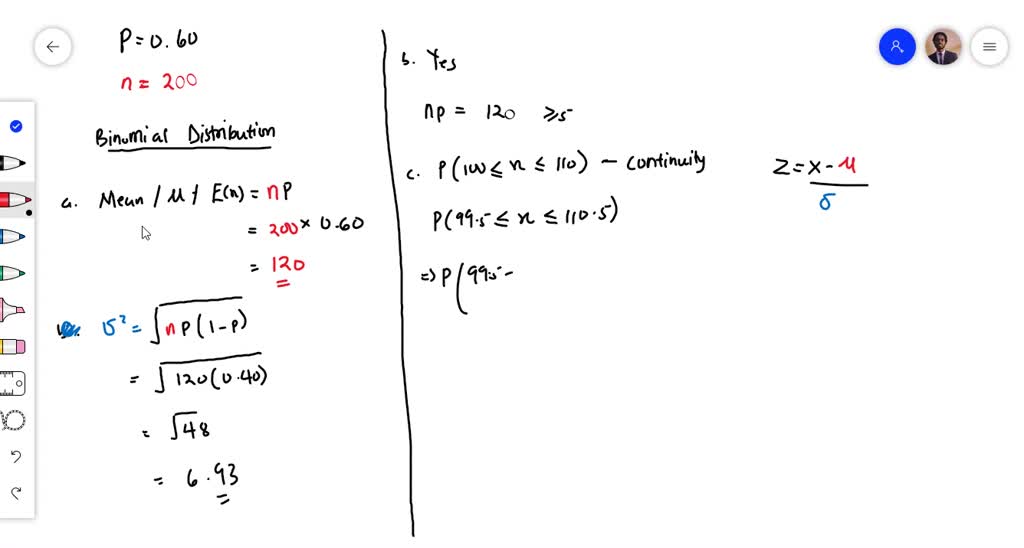 P = 0.60
n = 200
Binomial Distribution
a. Mean / μ / E(x) = nP
= 200 × 0.60
= 120
σ² = √nP(1-P)
= √120(0.40)
= √48
= 6.93
b. Yes
np = 120 ≥5
c. P(100 ≤ x ≤ 110) - continuity
P(99.5 ≤ x ≤ 110.5)
=> P(99.5 -
Z = x - μ
σ